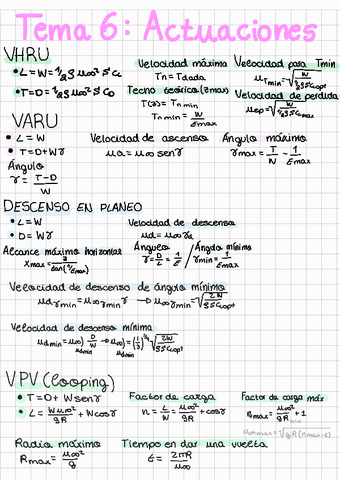 Tema 6: Actuaciones
VHRU
• L = W = 1/2 ρ u∞² S CL
• T = D = 1/2 ρ u∞² S CD
Velocidad máxima
Tn = Tdada
Tecno teórico (zmax)
T(z) = Tn min
Tn min = W/Emax
Velocidad para Tmin
Velocidad de perdida
VARU
• L = W
• T = D + Wγ
Ángulo
γ = (T-D)/W
Velocidad de ascenso
ua = u∞ sen γ
Ángulo máximo
γmax = T/W - 1/Emax
DESCENSO EN PLANEO
• L = W
• D = Wγ
Velocidad de descenso
ud = u∞ γd
Alcance máximo horizontal
Xmax = z/tan(1/Emax)
Ángulo
γ = D/L = 1/E
Ángulo mínimo
γmin = 1/Emax
Velocidad de descenso de ángulo mínimo
ud γmin = u∞ γmin γmin → u∞ γmin = √(2W/ρSCLopt)
Velocidad de descenso mínima
ud min = u∞)ud min D/W → u∞)ud min = (1/3)^1/4 √(2W/ρSCLopt)
VPV (Looping)
• T = D + W sen γ
• L = W u∞²/gR + W cos γ
Factor de carga
n = L/W = u∞²/gR + cos γ
Factor de carga máx
nmax = u∞²/gR + 1
u∞max = √(gR(nmax-1))
Radio máximo
Rmax = u∞²/g
Tiempo en dar una vuelta
t = 2πR/u∞